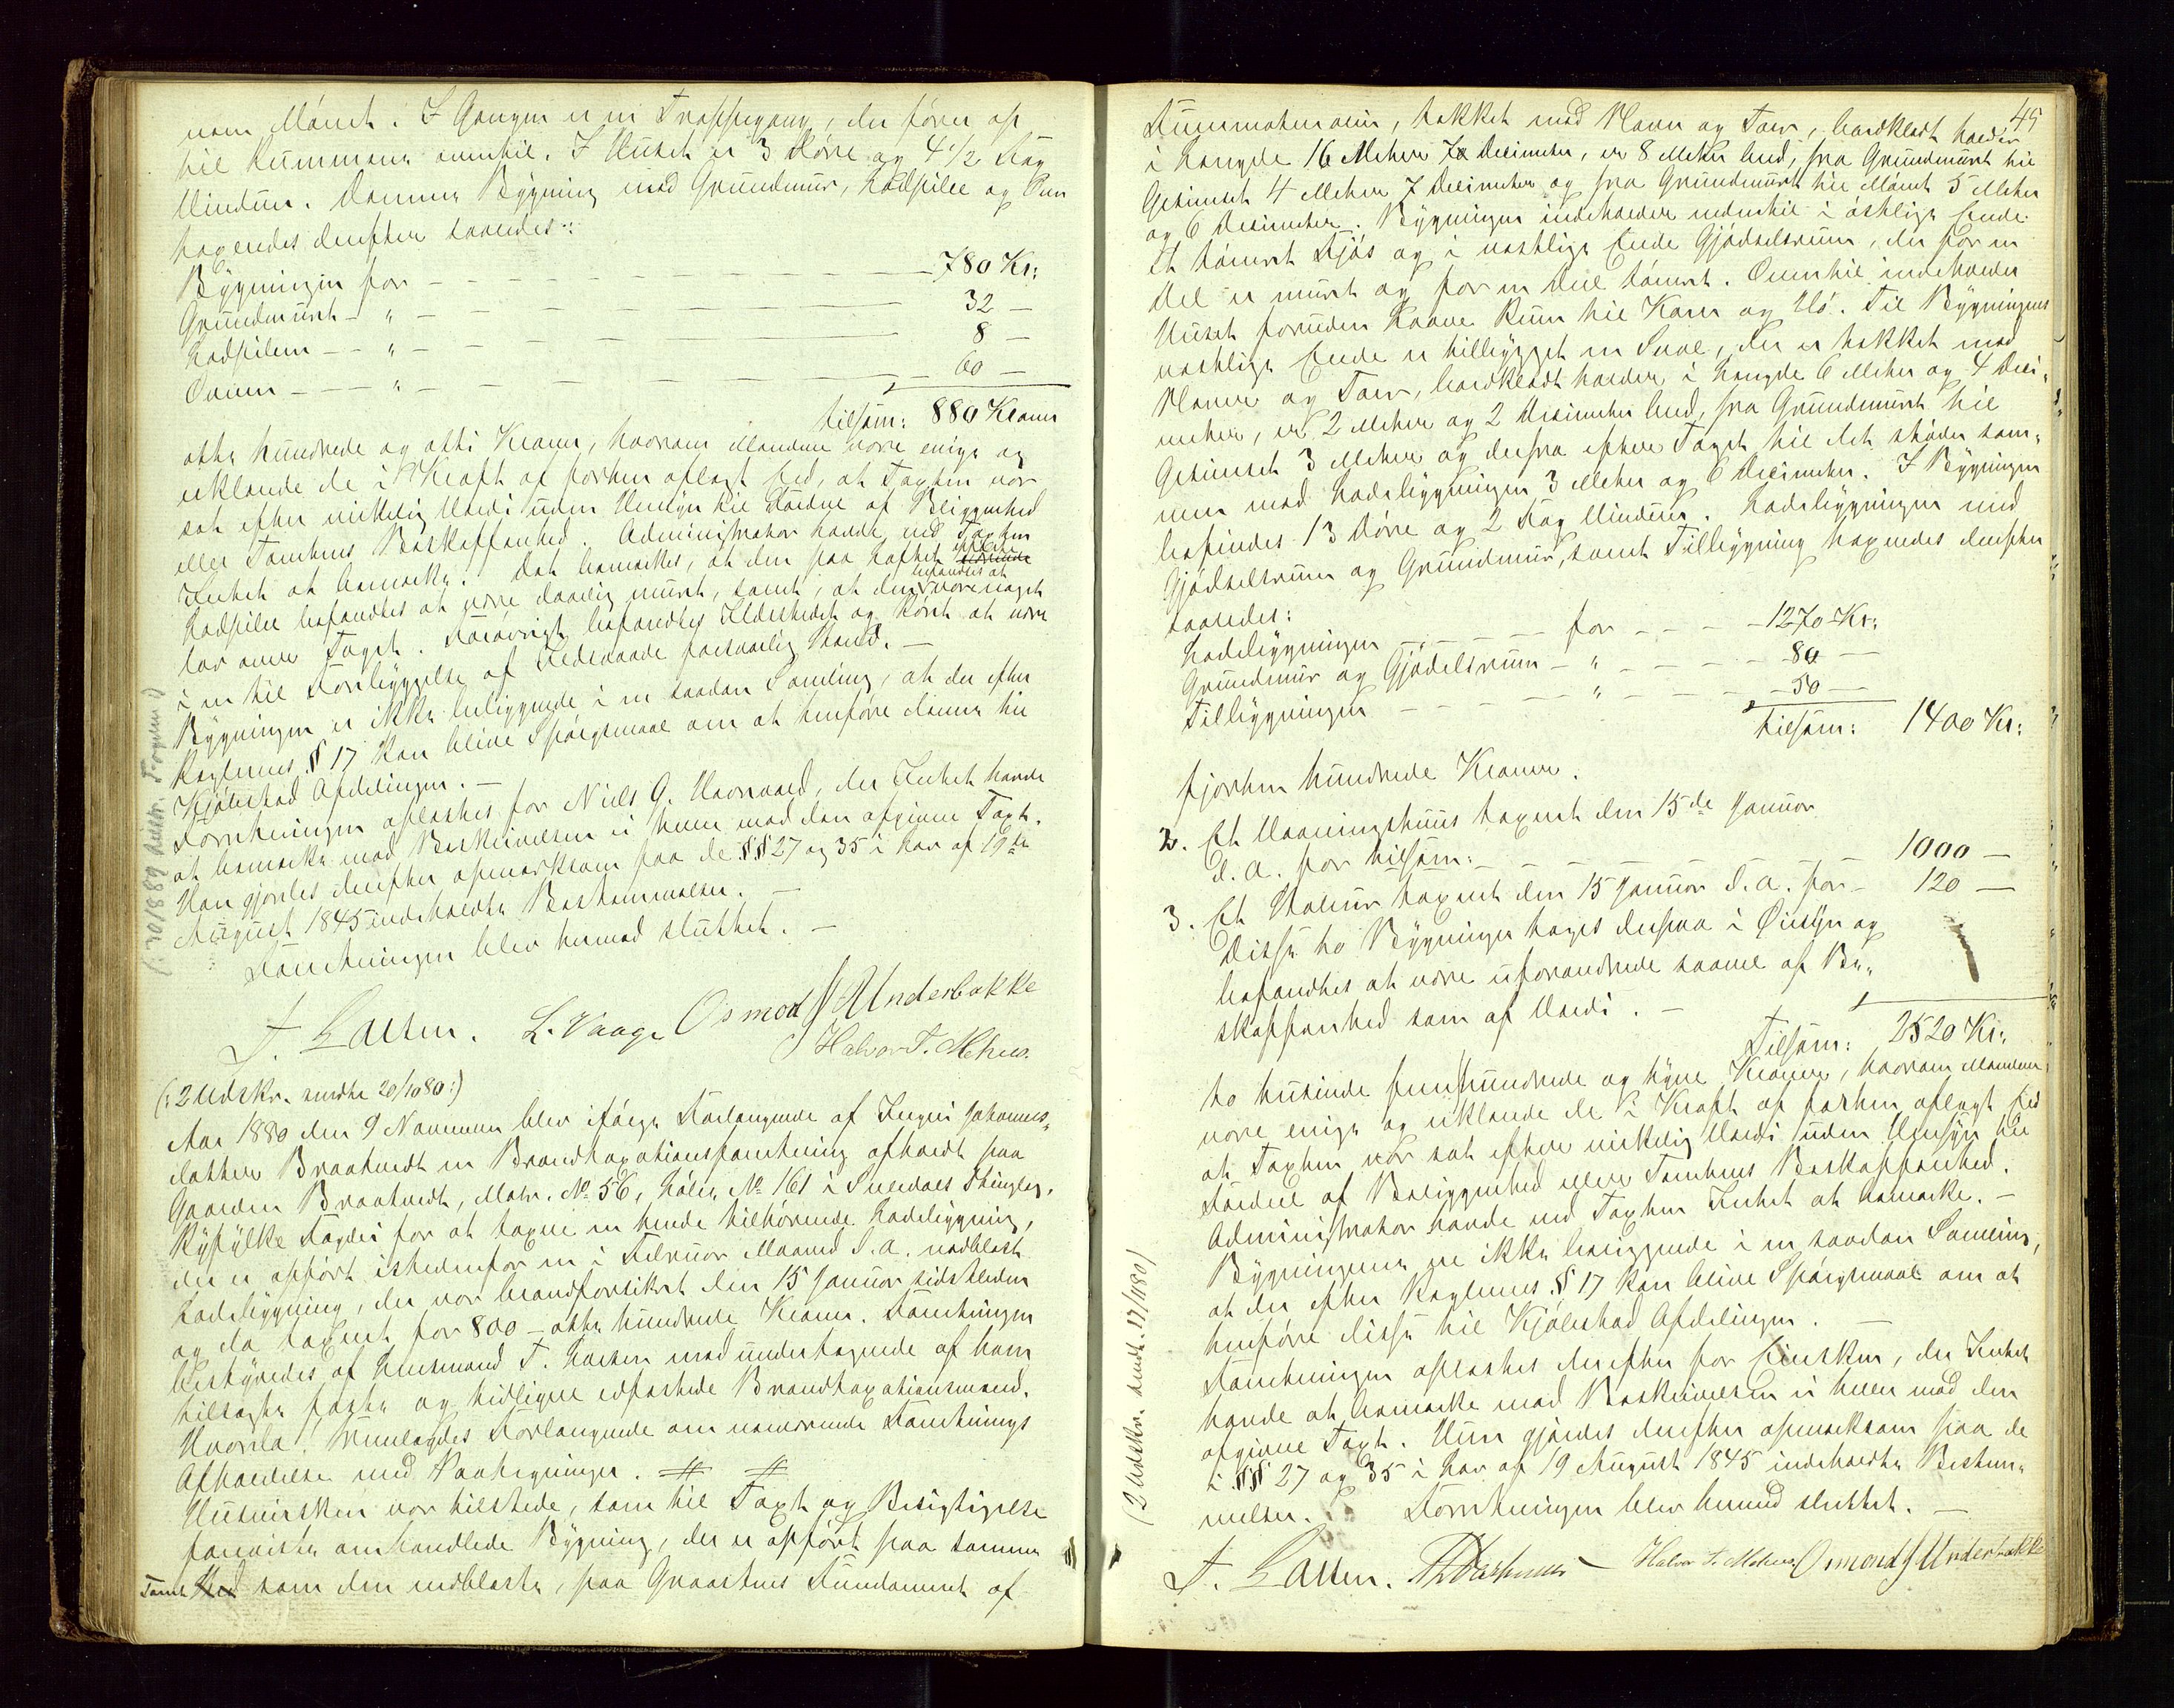 nem Mönet. I Gangen er en Trappegang, der fører op
til Rummene oventil. I Huset er 3 Döre og 4 1/2 Fag
Vinduer. Denne Bygning med Grundmur, Ladpibe og Ovn
taxeredes derefter saaledes:
Bygningen for — — — — — 780 Kr:
Grundmuret — " — — — — — 32 —
Ladpiben — — " — — — — — 8 —
Ovnen — — — " — — — — — 60 —
tilsam: 880 Kroner
otte hundrede og otti Kroner, hvorom Mændene vare enige og
erklærede de i Kraft af forhen aflagt Eed, at Taxten var
sat efter virkelig Værdi uden Hensyn til Fordeel af Beliggenhed
eller Tomtens Beskaffenhed. Administrator havde ved Taxten
Intet at bemærke. Det bemærkes, at den paa Loftet
Ladpibe befandtes at være daarlig muret, samt, at den befandtes at være noget
lav over Taget. Forøvrigt befandtes Ildstedet og Röret at være
i en til Forebyggelse af Ildsvaade forsvarlig Stand. —
Bygningen er ikke beliggende i en saadan Samling, at der efter
Reglernes § 17 kan blive Spörgsmaal om at henføre denne til
Kjöbstad Afdelingen. —
Forretningen oplæstes for Niels G. Havrevold, der Intet havde
at bemærke mod Beskrivelsen ei heller mod den afgivne Taxt.
Han gjordes derefter opmærksom paa de §§ 27 og 35 i Lov af 19de
August 1845 indeholdte Bestemmelser. —
Forretningen blev hermed sluttet. —
T. Larsen. L. Vaage Osmod J Underbakke
Halvor T. Mehus.
(: 2 Udskr. sendte 20/10 80:)
Aar 1880 den 9 November blev ifølge Forlangende af Ingeri Johannes-
datter Braatvedt en Brandtaxationsforretning afholdt paa
Gaarden Braatvedt, Matr. No 56, Löbe No 161 i Suledals Thinglag,
Ryfylke Fogderi for at taxere en hende tilhørende Ladebygning,
der er opført istedenfor en i Februar Maaned d. A. nedblæst
Ladebygning, der var brandforsikret den 15 Januar sidstleden
og da taxeret for 800 — otte hundrede Kroner. Forretningen
bestyredes af Lensmand T. Larsen med undertegnede af ham
tilsagte faste og tidligere edfæstede Brandtaxationsmænd.
Hvorda! Fremlagdes Forlangende om nærværende Forretnings
Afholdelse med Paategninger. # #
Husværsken var tilstede, som til Taxt og Besigtigelse
foreviste omhandlede Bygning, der er opført paa samme
Tomt som den nedblæste, paa Graastens Fundament af
(: 30/1889 Attestr. Forglem.)
49
Tømmermateriale, tækket med Næver og Torv, bordklædt holder
i Længde 16 Meter 7 Decimeter, er 8 Meter bred, fra Grundmuret til
Gesimset 4 Meter 7 Decimeter og fra Grundmuret til Mönet 5 Meter
og 6 Decimeter. Bygningen indeholder nedentil i østlige Ende
et tömret Fjös og i vestlige Ende Gjödselrum, der for en
Del er muret og for en Deel tömret. Oventil indeholder
Huset foruden Laave Rum til Korn og Hö. Til Bygningens
vestlige Ende er tilbygget en Sval, der er tækket med
Næver og Torv, bordklædt holder i Længde 6 Meter og 4 Deci-
meter, er 2 Meter og 2 Decimeter bred, fra Grundmuret til
Gesimset 3 Meter og derfra efter Taget til det støder sam-
men med Ladebygningen 3 Meter og 6 Decimeter. I Bygningen
befindes 13 Döre og 2 Fag Vinduer. Ladebygningen med
Gjödselrum og Grundmur, samt Tilbygning taxeredes derefter
saaledes:
Ladebygningen — — — — for — — — 1270 Kr:
Grundmur og Gjödselrum — " — — — — 80 —
Tilbygningen — — — — — " — — — — 50 —
tilsam: 1400 Kr:
fjorten hundrede Kroner.
2. Et Vaaningshuus taxeret den 15de Januar
d. A. for tilsam: — — — — — — 1000 —
3. Et Stabur taxeret den 15 Januar d. A. for — 120 —
Disse to Bygninger toges derpaa i Øiesyn og
befandtes at være uforandrede saavel af Be-
skaffenhed som af Værdi. —
Tilsam: 2520 Kr:
to tusinde femhundrede og tyve Kroner, hvorom Mændene
vare enige og erklærede de i Kraft af forhen aflagt Eed
at Taxten var sat efter virkelig Værdi uden Hensyn til
Fordeel af Beliggenhed eller Tomtens Beskaffenhed.
Administrator havde ved Taxten Intet at bemærke. —
Bygningerne ere ikke beliggende i en saadan Samling,
at der efter Reglernes § 17 kan blive Spörgsmaal om at
henføre disse til Kjöbstad Afdelingen. —
Forretningen oplæstes derefter for Eiersken, der Intet
havde at bemærke mod Beskrivelsen ei heller mod den
afgivne Taxt. Hun gjordes derefter opmærksom paa de
i §§ 27 og 35 i Lov af 19 August 1845 indeholdte Bestem-
melser. Forretningen blev hermed sluttet. —
T. Larsen. Halvor T. Mehus Osmond J Underbakke
(2 Udskr. sendt. 17/11 80)